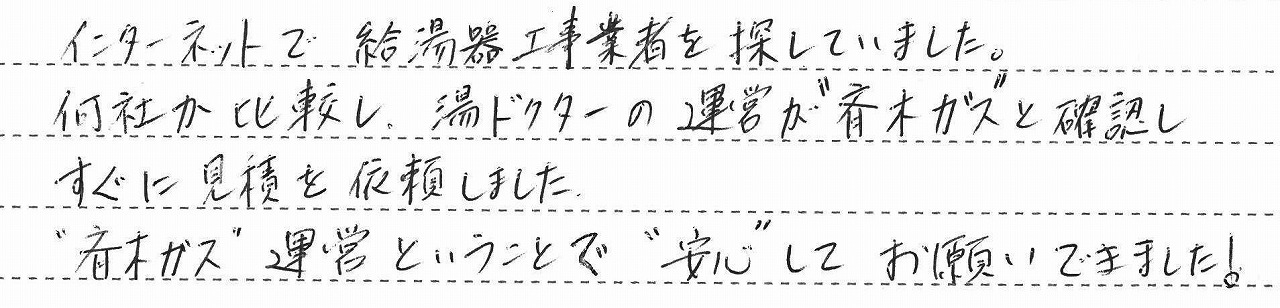 インターネットで 給湯器工事業者を 探していました。
何社か比較し、湯ドクターの 運営が"斉木ガス"と確認し
すぐに見積を依頼しました.
"斉木ガス"運営ということで "安心"して お願いできました!